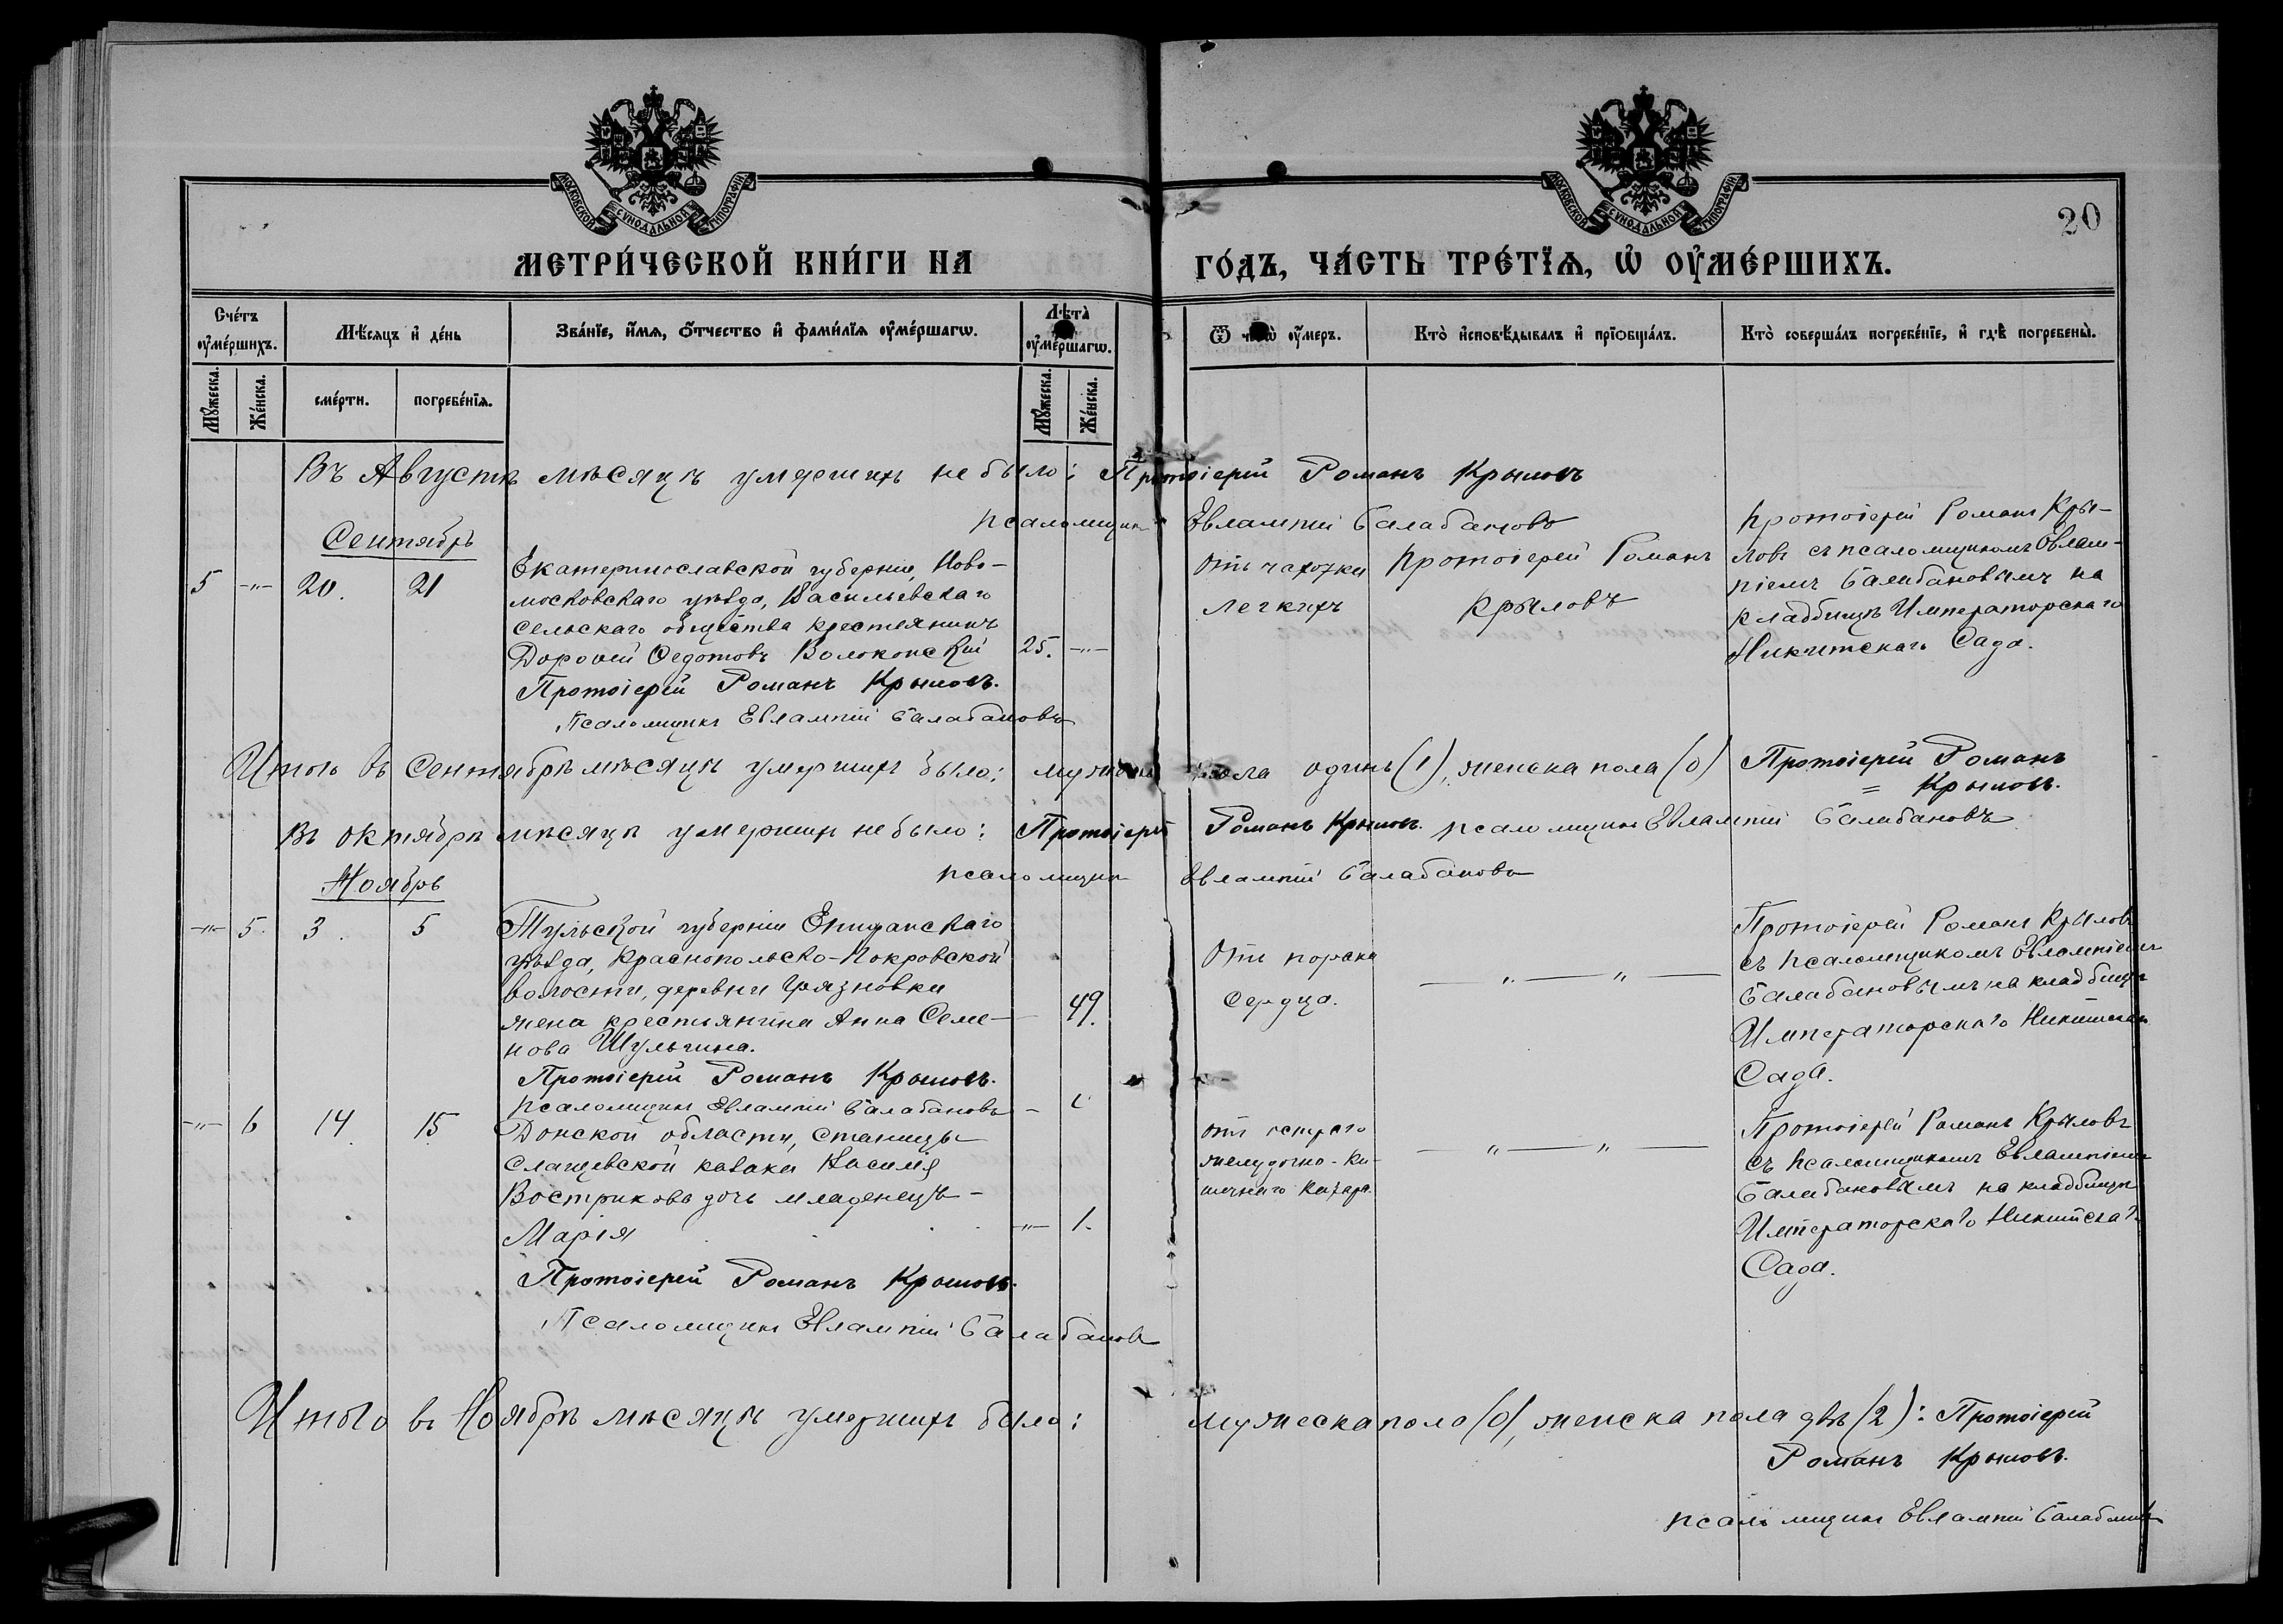 МОСКОВСКОЙ СѴНОДАЛЬНОЙ ТИПОГРАФІИ
МОСКОВСКОЙ СѴНОДАЛЬНОЙ ТИПОГРАФІИ
20
МЕТРИ́ЧЕСКОЙ КНИ́ГИ НА ГО́ДЪ, ЧА́СТЬ ТРЕ́ТІЯ, Ѡ ОУМЕ́РШИХЪ.
Счетъ оумершихъ.
Мѣсяцъ и день
Званіе, имя, отчество и фамилія оумершагѡ.
Лѣта оумершагѡ.
Ѿ чегѡ оумеръ.
Кто исповѣдывалъ и пріобщалъ.
Кто совершалъ погребеніе, и гдѣ погребены.
Мужеска. Женска. смерти. погребенія. Мужеска. Женска.
Въ Августѣ мѣсяцѣ умершихъ не было: Протоіерей Романъ Крыловъ
псаломщикъ Евлампій Балабановъ
Сентябрь
5 -"- 20. 21
Екатеринославской губерніи, Ново-
московскаго уѣзда, Васильевскаго
сельскаго общества крестьянинъ
Дорофей Федотовъ Волоконскій 25. -"-
Протоіерей Романъ Крыловъ.
Псаломщикъ Евлампій Балабановъ
Отъ чахотки
легкихъ
Протоіерей Романъ
Крыловъ
Протоіерей Романъ Кры-
ловъ съ псаломщикомъ Евлам-
піемъ Балабановымъ на
кладбищѣ Императорскаго
Никитскаго Сада.
Итого въ Сентябрѣ мѣсяцѣ умершихъ было: мужеска пола одинъ (1), женска пола (0) Протоіерей Романъ
Крыловъ.
Въ октябрѣ мѣсяцѣ умершихъ не было: Протоіерей Романъ Крыловъ. псаломщикъ Евлампій Балабановъ
псаломщикъ Евлампій Балабановъ
Ноябрь
-"- 5. 3. 5
Тульской губерніи Епифанскаго
уѣзда, Краснопольско-Покровской
волости, деревни Грязновки
жена крестьянина Анна Семе- 49.
нова Шульгина.
Протоіерей Романъ Крыловъ.
псаломщикъ Евлампій Балабановъ
Отъ порока
сердца.
-"-"-
Протоіерей Романъ Крыловъ
съ псаломщикомъ Евлампіемъ
Балабановымъ на кладбищѣ
Императорскаго Никитскаго
Сада.
-"- 6 14. 15
Донской области, станицы
Слащевской казака Василія
Вострикова дочь младенецъ-
Марія -"- 1.
Протоіерей Романъ Крыловъ.
Псаломщикъ Евлампій Балабановъ
Отъ остраго
желудочно-ки-
шечнаго катара.
-"-"-
Протоіерей Романъ Крыловъ
съ псаломщикомъ Евлампіемъ
Балабановымъ на кладбищѣ
Императорскаго Никитскаго
Сада.
Итого въ Ноябрѣ мѣсяцѣ умершихъ было: мужеска пола (0), женска пола двѣ (2): Протоіерей
Романъ Крыловъ.
псаломщикъ Евлампій Балабановъ